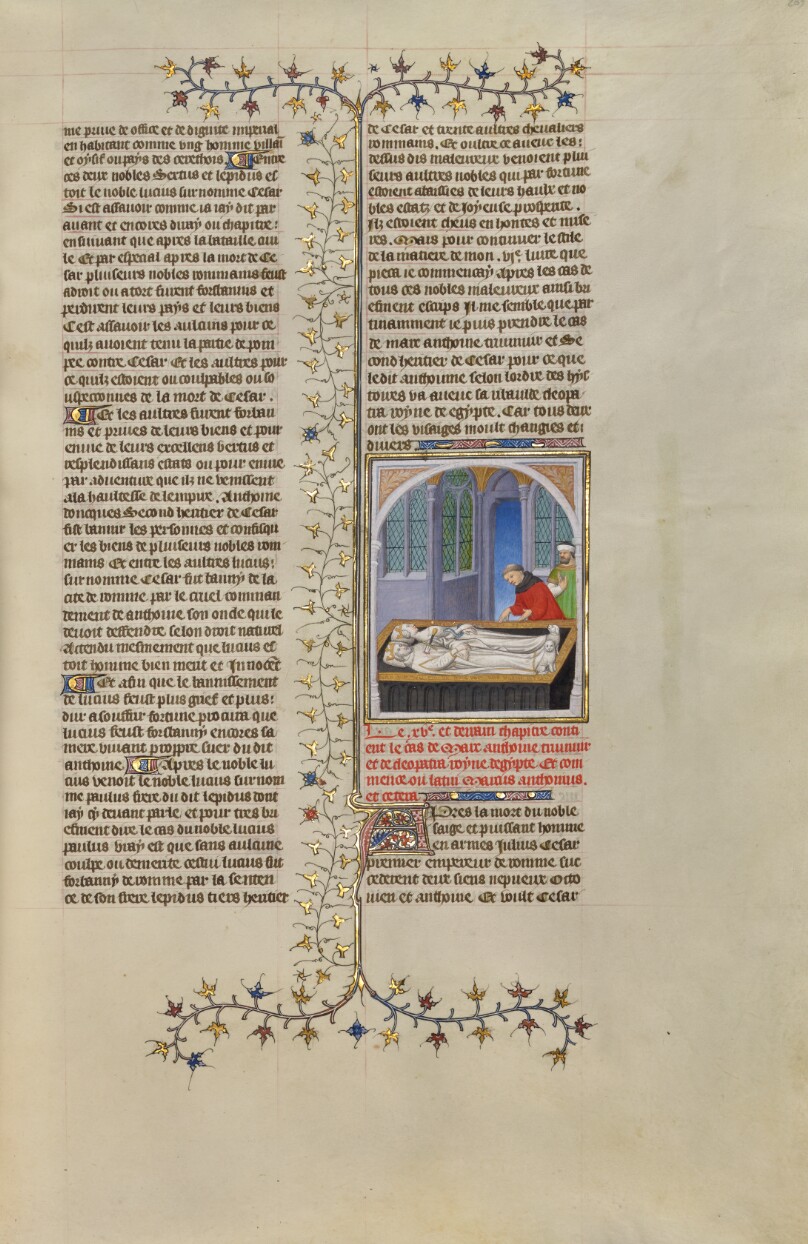 me priue de office et de dignite imperial
en habitant comme ung homme villai
et oysif ou pays des Entre
ces deux nobles Sextus et lepidus es
toit le noble lucius surnomme Cesar
Si est assauoir comme ia iay dit par
auant et encores diray ou chapitre
ensuiuant que apres la bataille
Et par especial apres la mort de Ce
sar pluiseurs nobles rommains feust
a droit ou a tort furent forbannis et
perdirent leurs pays et leurs biens
Cest assauoir les aulcuns pour ce
quilz auoient tenu la partie de pom
pee contre Cesar Et les aultres pour
ce quilz estoient ou coulpables ou so
uspeconnes de la mort de Cesar .
Et les aultres furent forban
nis et priues de leurs biens et pour
enuie de leurs excellens vertus et
resplendissans estats ou pour enuie
par aduenture que ilz ne venissent
a la haultesse de lempire . Anthoine
doncques Second heritier de Cesar
fist bannir les personnes et confisqu
er les biens de pluiseurs nobles rom
mains Et entre les aultres lucius
surnomme Cesar fut banny de la
cite de romme par le cruel comman
dement de anthoine son oncle qui le
deuoit deffendre selon droit naturel
Attendu mesmement que lucius es
toit homme bien meur et Innocet
Et afin que le bannissement
de lucius feust plus grief et plus
dur a souffrir fortune procura que
lucius feust forbanny encores sa
mere viuant propre suer du dit
anthoine Apres le noble lu
cius venoit le noble lucius surnom
me paulus frere du dit lepidus dont
iay cy deuant parle et pour tres bri
efment dire le cas du noble lucius
paulus vray est que sans aulcune
coulpe ou demerite cestui lucius fut
forbanny de romme par la senten
ce de son frere lepidus tiers heritier
de Cesar et trente aultres cheualiers
rommains . Et oultre ce auec les
dessus dis maleureux venoient plui
seurs aultres nobles qui par fortune
estoient abaissies de leurs haulx et no
bles estatz et de ioyeuse prosperite .
Ilz estoient cheus en hontes et mise
res . Mais pour continuer le stile
de la matiere de mon . vje liure que
pieca ie commencay apres les cas de
tous ces nobles maleureux ainsi bri
efment escrips Il me semble que par
tinamment ie puis prendre le cas
de marc anthoine triumuir et Se
cond heritier de Cesar pour ce que
ledit anthoine selon lordre des hys
toires va auec sa ribaulde cleopa
tra royne de egypte . Car tous deux
ont les visaiges moult changies et
diuers
Le .xve. et derrain chapitre conti
ent le cas de Marc anthoine triumuir
et de cleopatra royne degypte Et com
mence ou latin Marcus anthonius .
et cetera
Apres la mort du noble
saige et puissant homme
en armes Julius Cesar
premier empereur de romme suc
cederent deux siens nepueux Octo
uien et anthoine Et voult Cesar